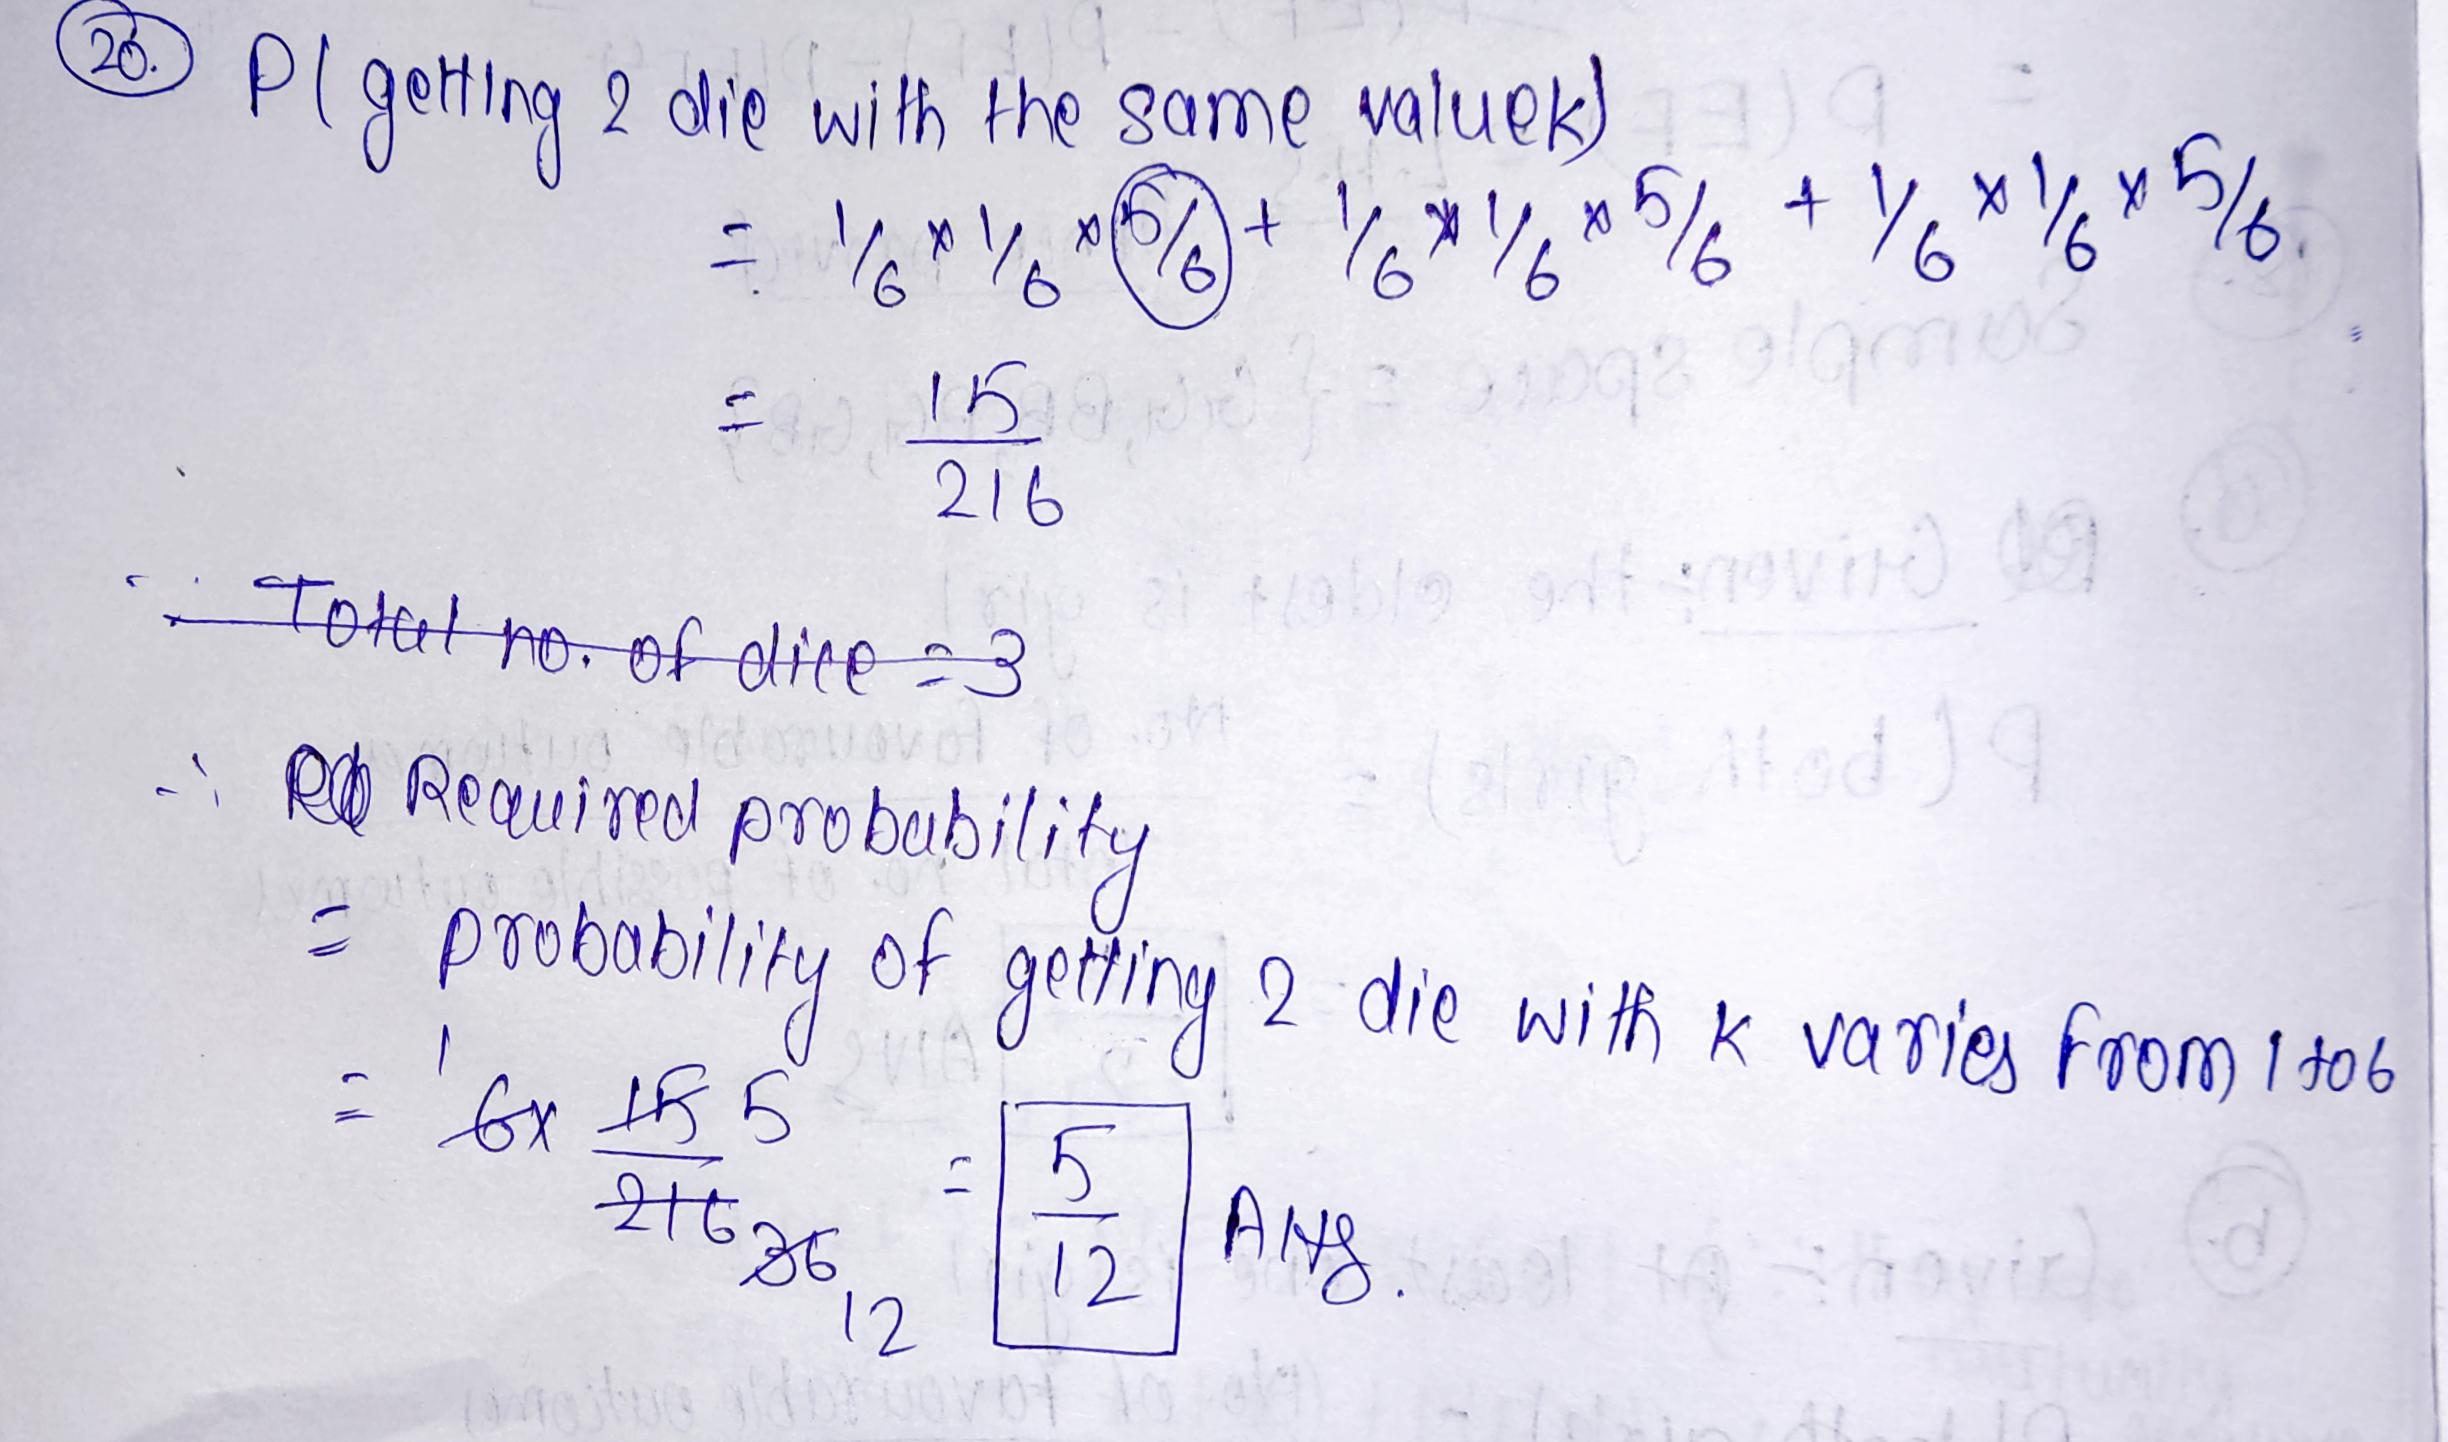 20. P( getting 2 die with the same value k)
= 1/6 × 1/6 × 5/6 + 1/6 × 1/6 × 5/6 + 1/6 × 1/6 × 5/6.
= 15/216
∴ Total no. of dice = 3
∴ Required probability
= probability of getting 2 die with k varies from 1 to 6
= 1 6 × 15 5 / 216 36 12 = 5/12 Ans.